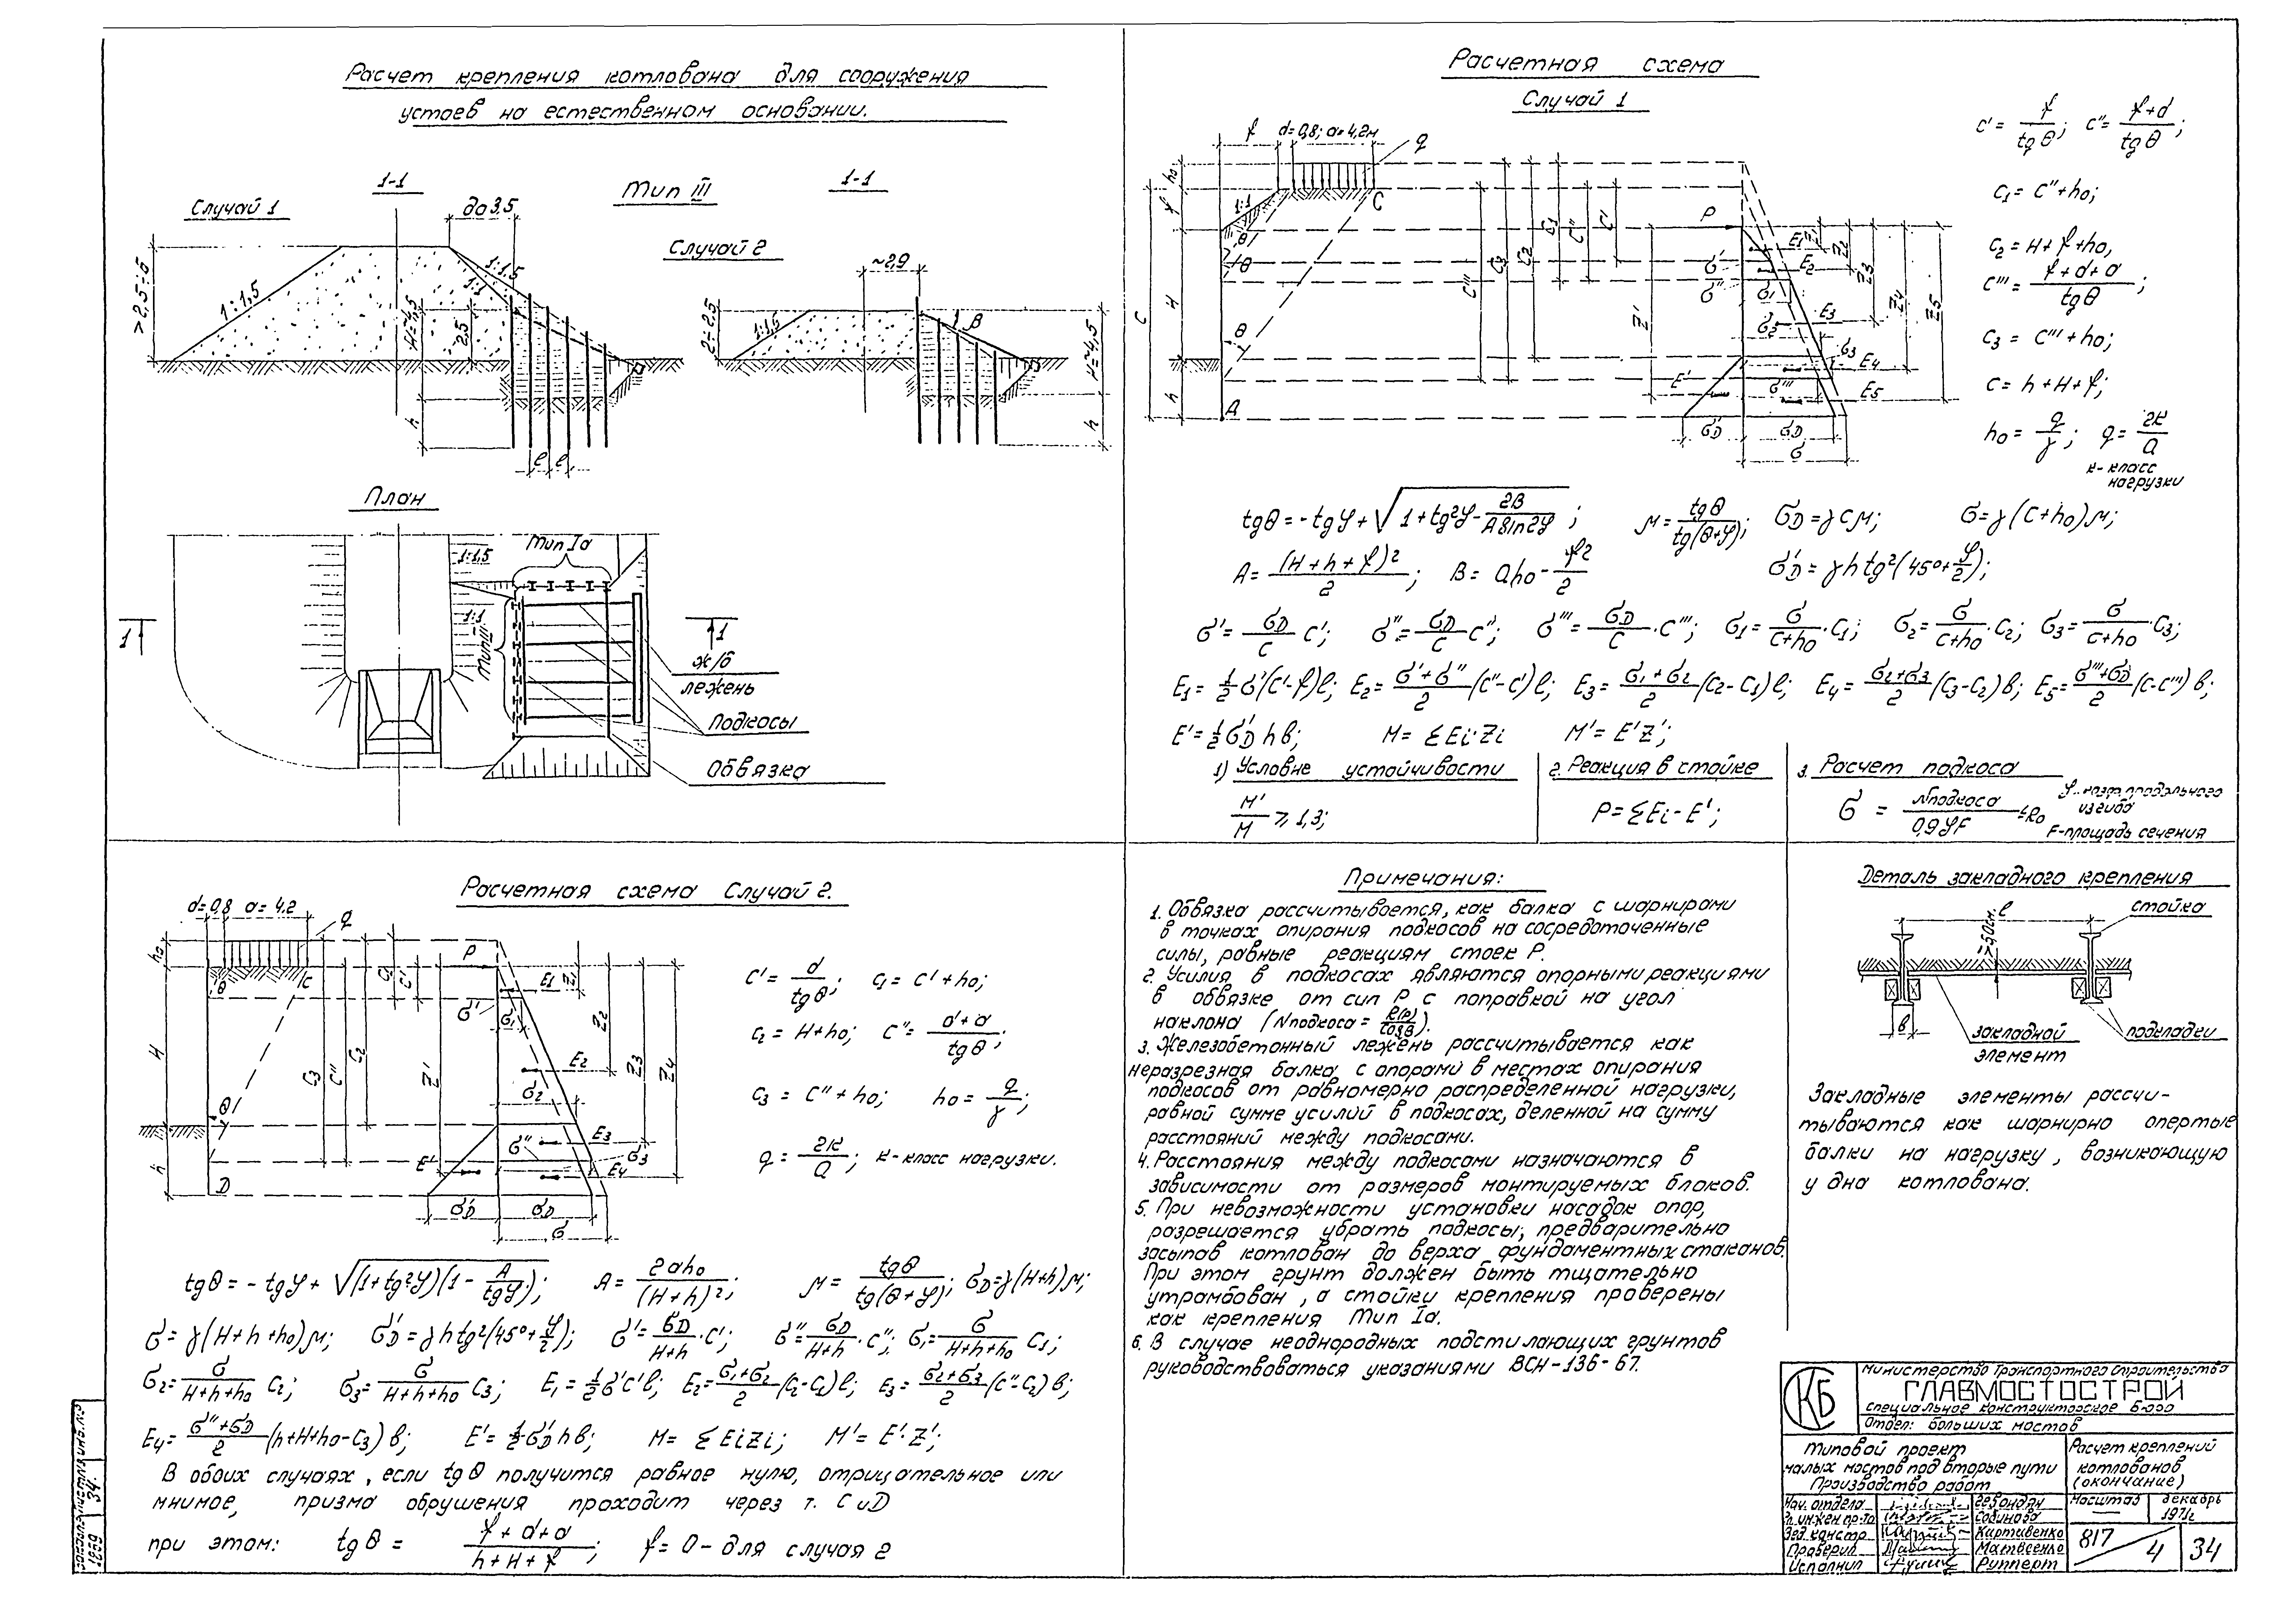 Расчет крепления котлована для сооружения
устоев на естественном основании.
Случай 1
1-1
Тип III
1-1
до 3.5
Случай 2
~2,9
1:1,5
1:1,5
1:1
>2,5÷6
H=~4,5
2.5
2÷2.5
1:1,5
β
H=~4,5
h
h
ℓ ℓ
План
1:1,5
Тип Iа
1:1
Тип III
1
1
ж/б
лежень
Подкосы
Обвязка
Расчетная схема
Случай 1
f d=0,8; a=4,2м
q
h₀
f
1:1
C
θ
H
C
h
A
P
C₁ C'' C'
C''' C₃ C₂
Z'
σ'
σ''
σ₁
σ₂
σ₃
σ'''
E₁
E₂
E₃
E₄
E₅
E'
Z₁ Z₂ Z₃ Z₄ Z₅
σ'D σD
σ
C' = f/tgθ; C'' = (f+d)/tgθ;
C₁ = C''+h₀;
C₂ = H+f+h₀,
C''' = (f+d+a)/tgθ;
C₃ = C'''+h₀;
C = h+H+f;
h₀ = q/γ; q = 2K/a
К-класс
нагрузки
tgθ = -tgφ + √(1+tg²φ - 2B/(A sin2φ)); M = tgθ/tg(θ+φ); σD = γCM; σ = γ(C+h₀)M;
A = (H+h+f)²/2; B = ah₀ - f²/2 σ'D = γh tg²(45°+φ/2);
σ' = σD/C C'; σ'' = σD/C C''; σ''' = σD/C · C'''; σ₁ = σ/(C+h₀) · C₁; σ₂ = σ/(C+h₀) · C₂; σ₃ = σ/(C+h₀) · C₃;
E₁ = ½σ'(C'-f)ℓ; E₂ = (σ'+σ'')/2 (C''-C')ℓ; E₃ = (σ₁+σ₂)/2 (C₂-C₁)ℓ; E₄ = (σ₂+σ₃)/2 (C₃-C₂)в; E₅ = (σ'''+σD)/2 (C-C''')в;
E' = ½σ'D hв; M = ΣEi·Zi M' = E'Z';
1) Условие устойчивости
M'/M ⩾ 1,3;
2. Реакция в стойке
P = ΣEi - E';
3. Расчет подкоса
σ = Nподкоса/0,9φF = R₀
φ-коэф. продольного
изгиба
F-площадь сечения
Расчетная схема Случай 2.
d=0,8 a=4,2
q
h₀
θ C
H
θ
h
D
P
C₁ C'
C₃ C'' C₂
Z'
σ'
σ₁
σ₂
σ''
σ₃
E₁
E₂
E₃
E₄
E'
Z₁ Z₂ Z₃ Z₄
σ'D σD
σ
C' = d/tgθ; C₁ = C'+h₀;
C₂ = H+h₀; C'' = (d+a)/tgθ;
C₃ = C''+h₀; h₀ = q/γ;
q = 2K/a; К-класс нагрузки.
tgθ = -tgφ + √((1+tg²φ)(1 - A/tgφ)); A = 2ah₀/(H+h)²; M = tgθ/tg(θ+φ); σD = γ(H+h)M;
σ = γ(H+h+h₀)M; σ'D = γh tg²(45°+φ/2); σ' = σD/(H+h) · C'; σ'' = σD/(H+h) · C''; σ₁ = σ/(H+h+h₀) C₁;
σ₂ = σ/(H+h+h₀) C₂; σ₃ = σ/(H+h+h₀) C₃; E₁ = ½σ'C'ℓ; E₂ = (σ₁+σ₂)/2 (C₂-C₁)ℓ; E₃ = (σ₂+σ₃)/2 (C''-C₂)в;
E₄ = (σ''+σD)/2 (h+H+h₀-C₃)в; E' = ½σ'D hв; M = ΣEiZi; M' = E'·Z';
В обоих случаях, если tgθ получится равное нулю, отрицательное или
мнимое, призма обрушения проходит через т. С и D
при этом: tgθ = (f+d+a)/(h+H+f); f=0-для случая 2
Примечания:
1. Обвязка рассчитывается, как балка с шарнирами
в точках опирания подкосов на сосредоточенные
силы, равные реакциям стоек Р.
2. Усилия в подкосах являются опорными реакциями
в обвязке от сил Р с поправкой на угол
наклона (Nподкоса = R(P)/cosβ).
3. Железобетонный лежень рассчитывается как
неразрезная балка с опорами в местах опирания
подкосов от равномерно распределенной нагрузки,
равной сумме усилий в подкосах, деленной на сумму
расстояний между подкосами.
4. Расстояния между подкосами назначаются в
зависимости от размеров монтируемых блоков.
5. При невозможности установки насадок опор,
разрешается убрать подкосы, предварительно
засыпав котлован до верха фундаментных стаканов.
При этом грунт должен быть тщательно
утрамбован, а стойки крепления проверены
как крепления Тип Iа.
6. В случае неоднородных подстилающих грунтов
руководствоваться указаниями ВСН-136-67.
Деталь закладного крепления
ℓ
стойка
≥50см.
в
закладной
элемент
подкладки
Закладные элементы рассчи-
тываются как шарнирно опертые
балки на нагрузку, возникающую
у дна котлована.
СКБ
Министерство Транспортного Строительства
ГЛАВМОСТОСТРОЙ
Специальное конструкторское Бюро
Отдел: больших мостов
Типовой проект
малых мостов под вторые пути
Производство работ
Расчет креплений
котлованов
(окончание)
Нач. отдела
Гл. инжен пр-та
Вед. констр.
Картавенко
Проверил
Матвеенко
Исполнил
Рупперт
Масштаб
—
декабрь
1971г
817/4
34
1899 34.